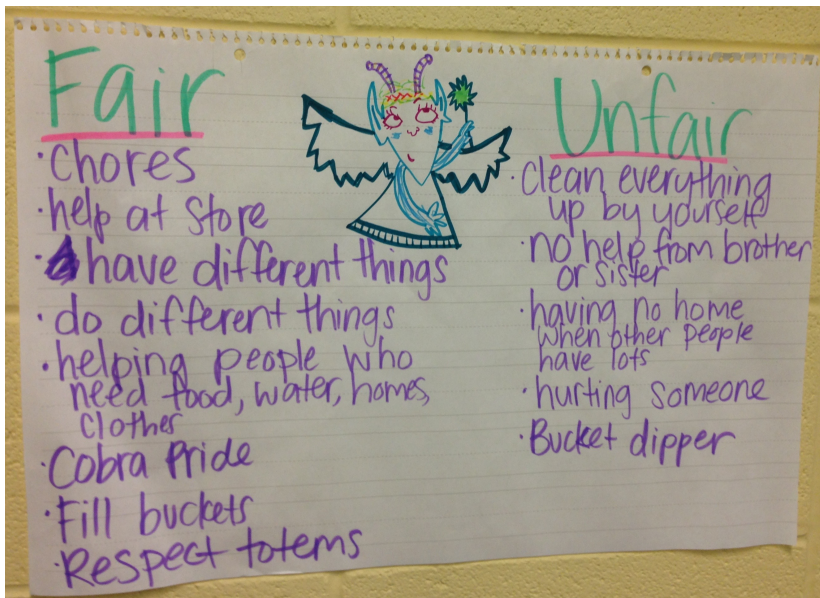 Fair
• Chores
• help at Store
• have different things
• do different things
• helping people who
need food, water, homes,
clothes
• Cobra Pride
• Fill buckets
• Respect totems
Unfair
• Clean everything
up by yourself
• no help from brother
or sister
• having no home
when other people
have lots
• hurting someone
• Bucket dipper